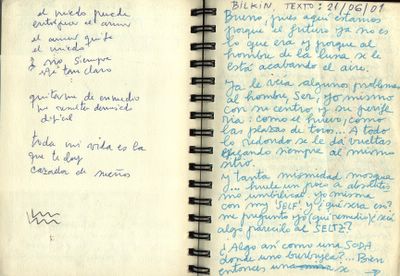 el miedo puede
entorpecer el amor
el amor quita
el miedo
y no siempre
está tan claro
quitarme de en medio
me resulta demasiado
difícil
toda mi vida es la
que te doy
cazada de sueños
BILKIN, TEXTO: 21/06/01
Bueno, pues aquí estamos
porque el futuro ya no es
lo que era y porque al
hombre de la luna se le
está acabando el aire.
Ya le veía algunos problemas
al hombre. Ser yo mismo
con mi centro y su perife
ria: como el huevo, como
las plazas de toros... A todo
lo redondo se le da vueltas
llegando siempre al mismo
sitio.
Y tanta mismidad mosquea
... huele un poco a absoluto
mi umbilical yo misma
con my 'SELF'. Y ¿qué será eso?
me pregunto yo (qué remedio) ¿será
algo parecido al SELTZ?
¿Algo así como una SODA
donde uno burbujea?... Bien
entonces una misma se